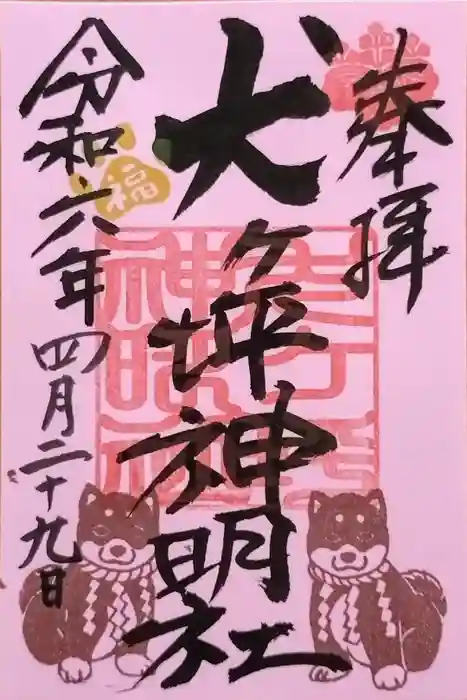 奉拝
犬ヶ坪神明社
令和六年
四月二十九日
福